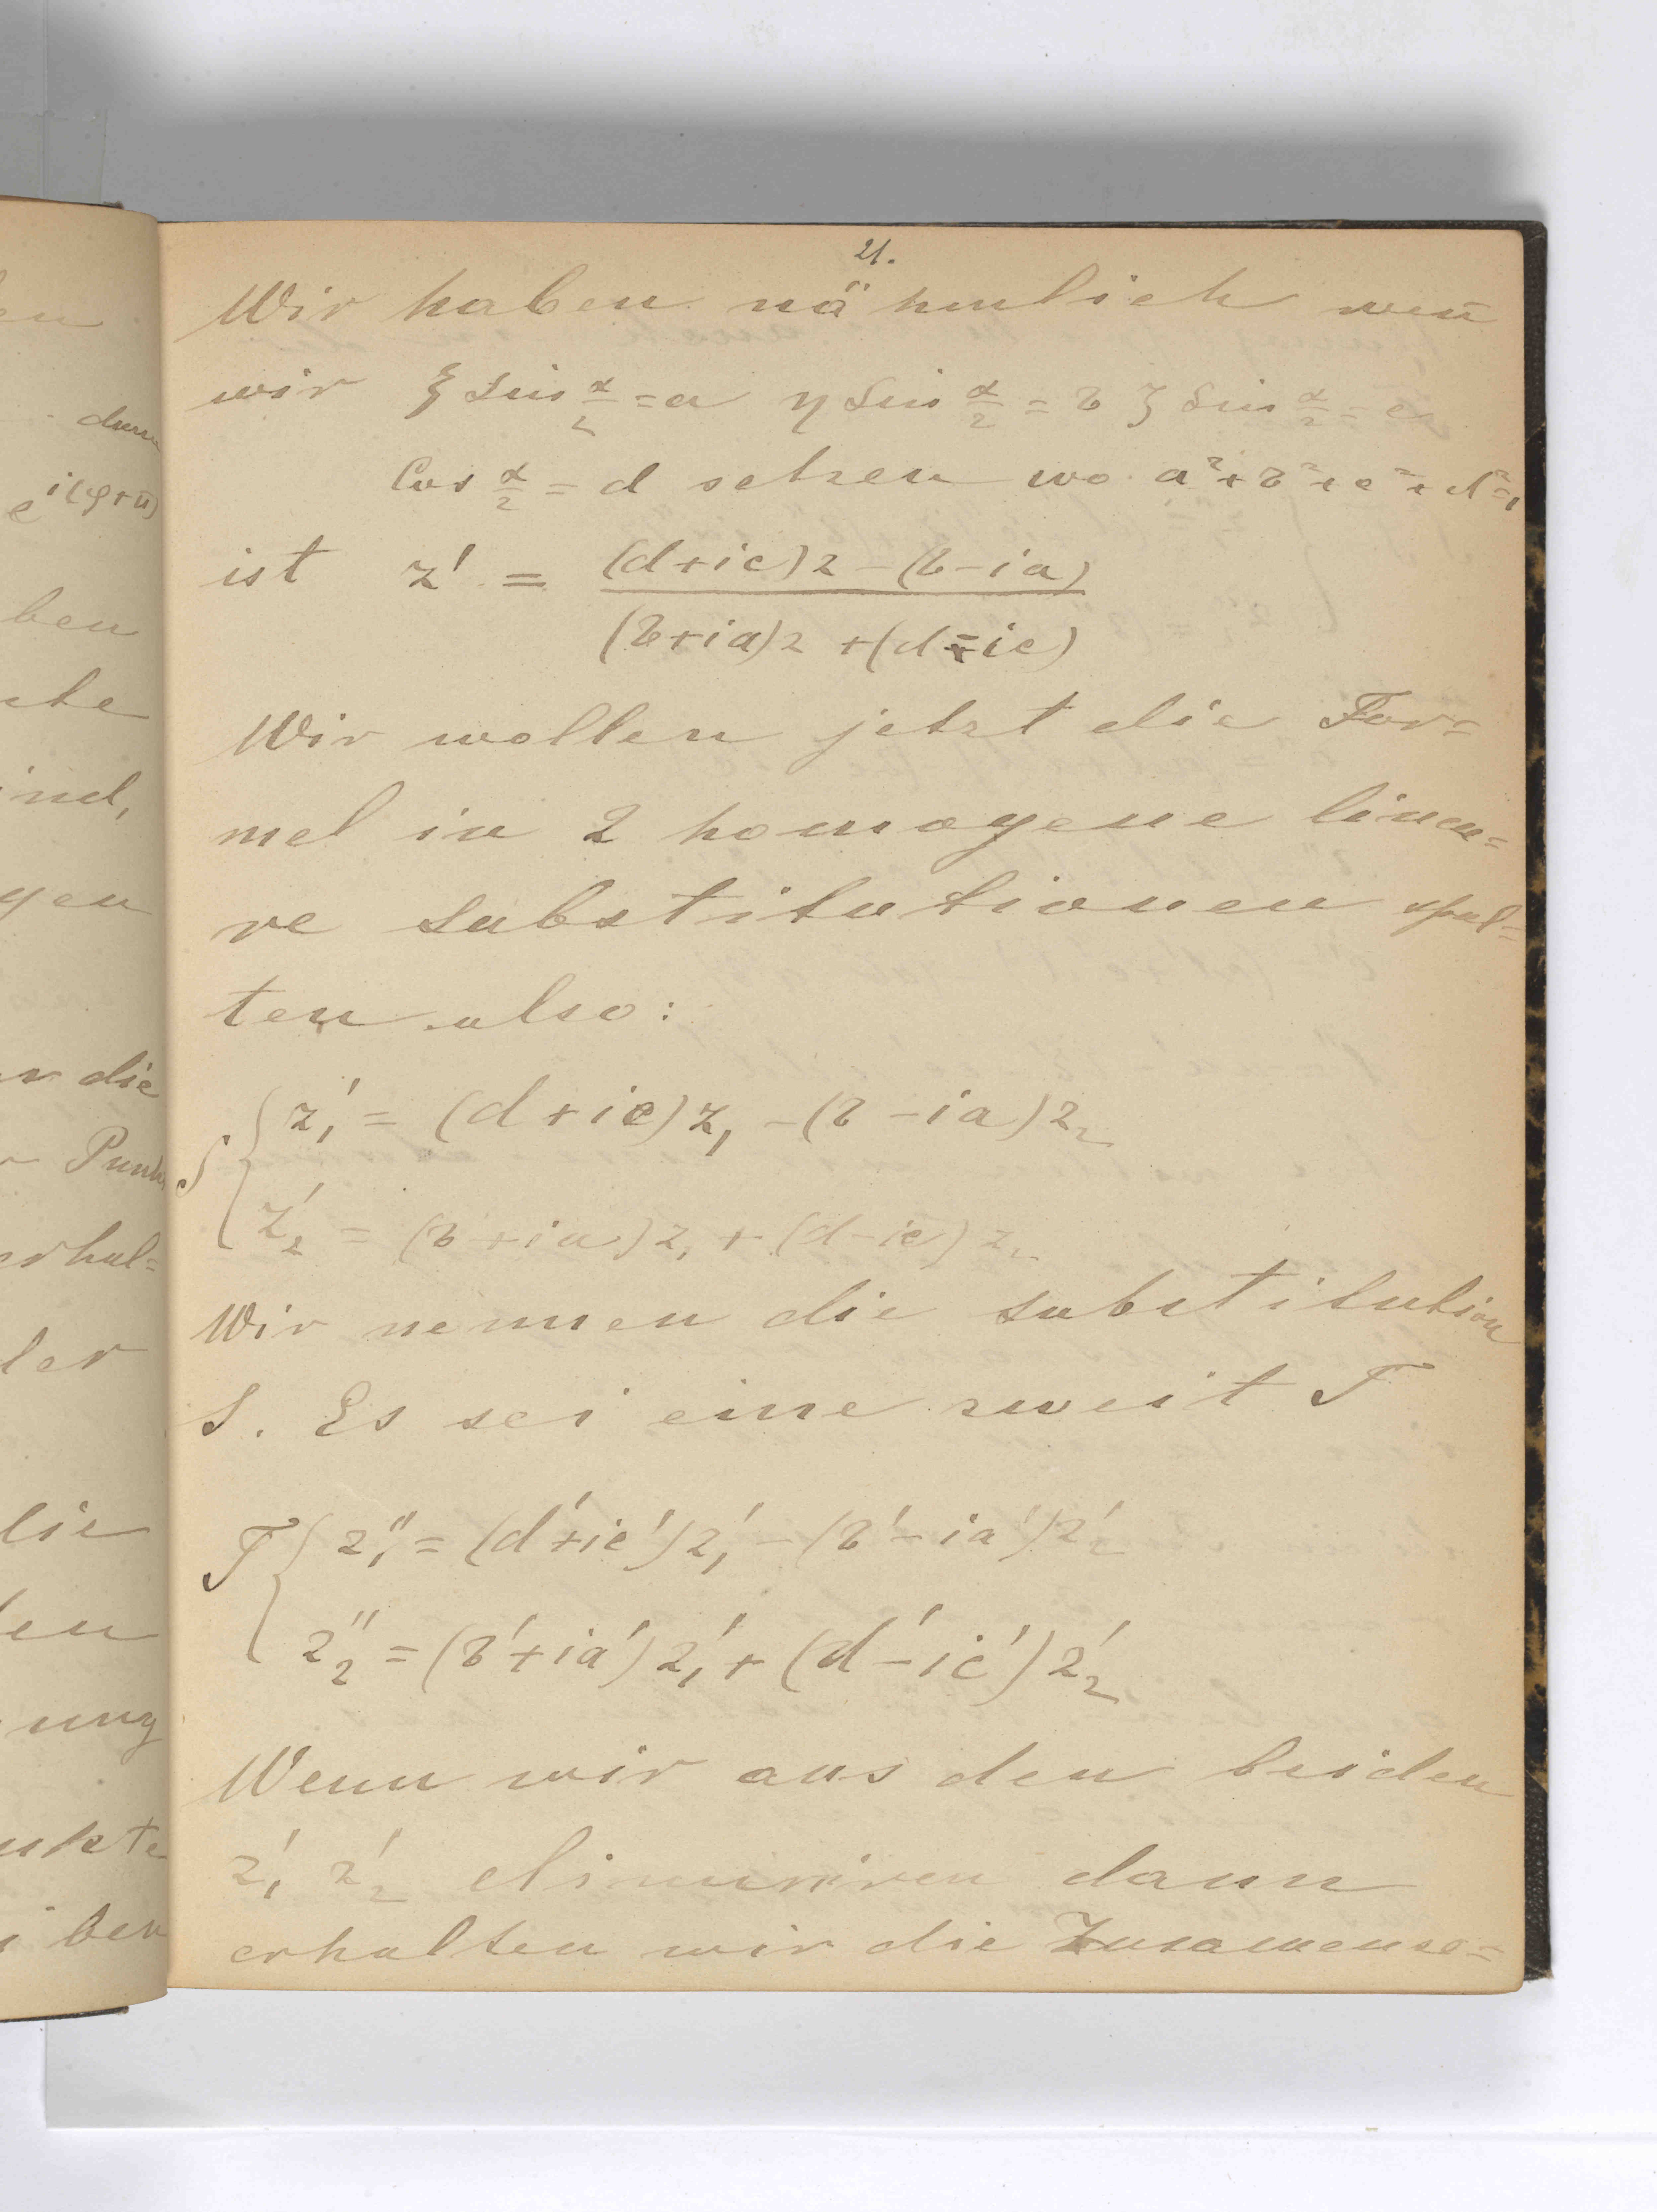 21.
Wir haben nähmlich weñ
wir ξ Sin α/2 = a η Sin α/2 = b ζ Sin α/2 = c
Cos α/2 = d setzen wo a² + b² + c² + d² = 1
ist z' = (d+ic)z - (b-ia)
(b+ia)z + (d-ic)
Wir wollen jetzt die For=
mel in 2 homogene linea=
re Substitutionen spal=
ten also:
S { z₁' = (d+ic)z₁ - (b-ia)z₂
z₂' = (b+ia)z₁ + (d-ic)z₂
Wir nennen die Substitution
S. Es sei eine zweit T
T { z₁'' = (d'+ic')z₁' - (b'-ia')z₂'
z₂'' = (b'+ia')z₁' + (d'-ic')z₂'
Wenn wir aus den beiden
z₁' z₂' eliminiren dann
erhalten wir die Zusamense=